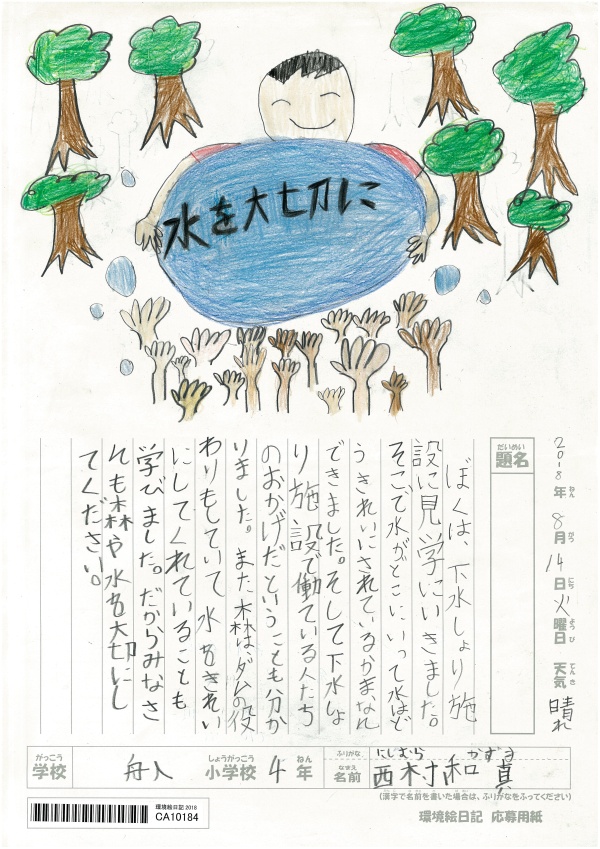 水を大切に
2018年 8月 14日 火曜日 天気 晴れ
ねん がつ にち ようび てんき
だいめい
題名
ぼくは、下水しょり施
設に見学にいきました。
そこで水がどこにいって水はど
うきれいにされているかまなん
できました。そして下水しょ
り施設で働ている人たち
のおかげだということも分か
りました。また森は、ダムの役
わりもしていて 水をきれい
にしてくれていることも
学びました。だからみなさ
んも森や水を大切にし
てください。
がっこう しょうがっこう ねん ふりがな にしむら かずま
学校 舟入 小学校 4年 なまえ 名前 西村和真
(漢字で名前を書いた場合は、ふりがなをふってください)
環境絵日記 2018
CA10184
環境絵日記 応募用紙